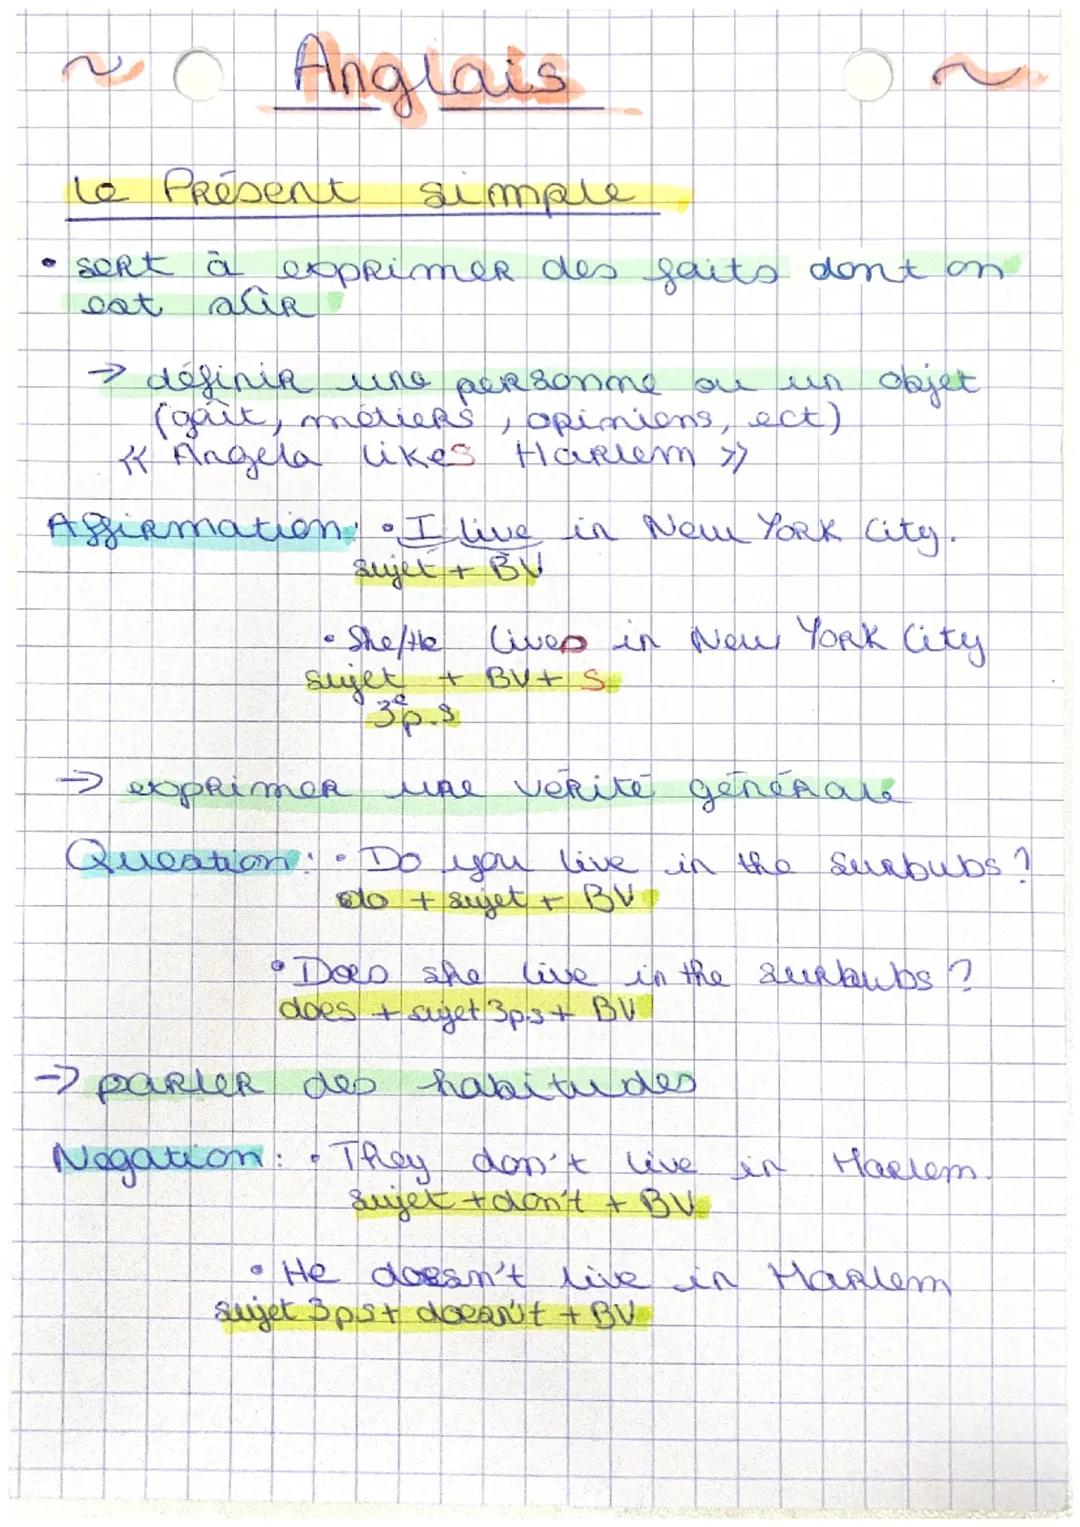 ~ Anglais ~
Le Présent simple
• sert à exprimer des faits dont on
est sûr
→ définir une personne ou un objet
(goût, métiers, opinions, ect)
« Angela likes Harlem »
Affirmation: • I live in New York City.
sujet + BV
• She/He lives in New York City
sujet + BV + S
3e p.s
→ exprimer une vérité générale
Question: • Do you live in the surbubs ?
do + sujet + BV
• Does she live in the surbubs ?
does + sujet 3p.s + BV
→ parler des habitudes
Négation: • They don't live in Harlem.
sujet + don't + BV
• He doesn't live in Harlem
sujet 3ps + doesn't + BV